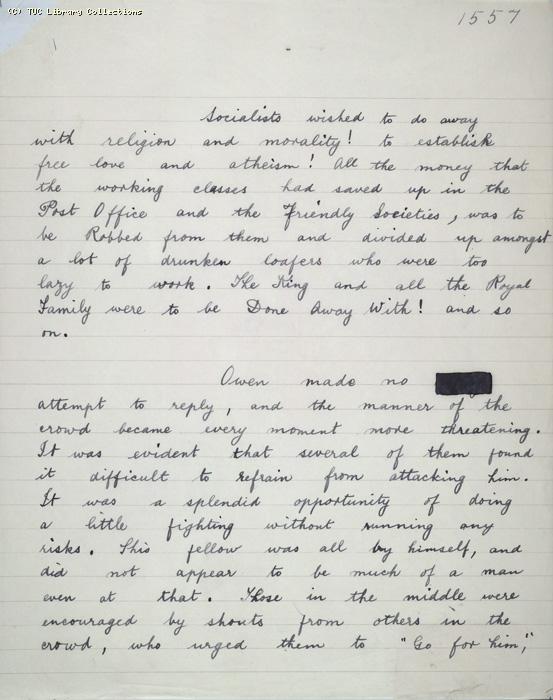 (C) TUC Library Collections
1557
Socialists wished to do away
with religion and morality! to establish
free love and atheism! All the money that
the working classes had saved up in the
Post Office and the Friendly Societies, was to
be Robbed from them and divided up amongst
a lot of drunken loafers who were too
lazy to work. The King and all the Royal
Family were to be Done Away With! and so
on.
Owen made no
attempt to reply, and the manner of the
crowd became every moment more threatening.
It was evident that several of them found
it difficult to refrain from attacking him.
It was a splendid opportunity of doing
a little fighting without running any
risks. This fellow was all by himself, and
did not appear to be much of a man
even at that. Those in the middle were
encouraged by shouts from others in the
crowd, who urged them to "Go for him,"